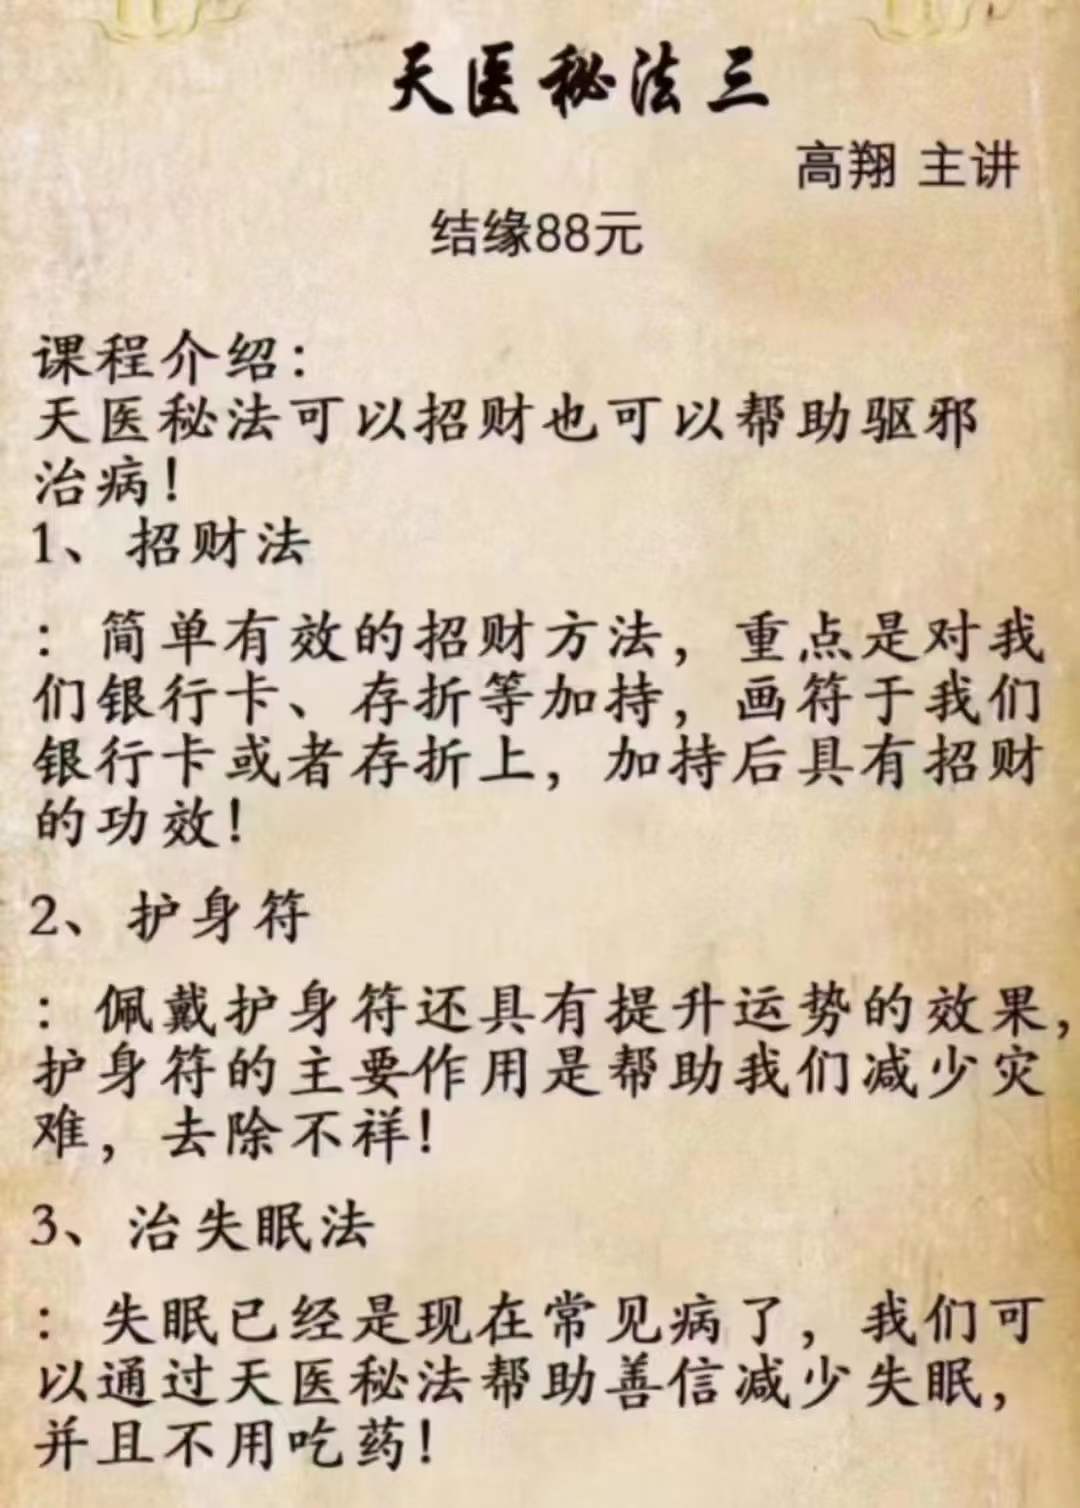 天医秘法三
高翔 主讲
结缘88元
课程介绍：
天医秘法可以招财也可以帮助驱邪
治病！
1、招财法
：简单有效的招财方法，重点是对我
们银行卡、存折等加持，画符于我们
银行卡或者存折上，加持后具有招财
的功效！
2、护身符
：佩戴护身符还具有提升运势的效果，
护身符的主要作用是帮助我们减少灾
难，去除不祥！
3、治失眠法
：失眠已经是现在常见病了，我们可
以通过天医秘法帮助善信减少失眠，
并且不用吃药！